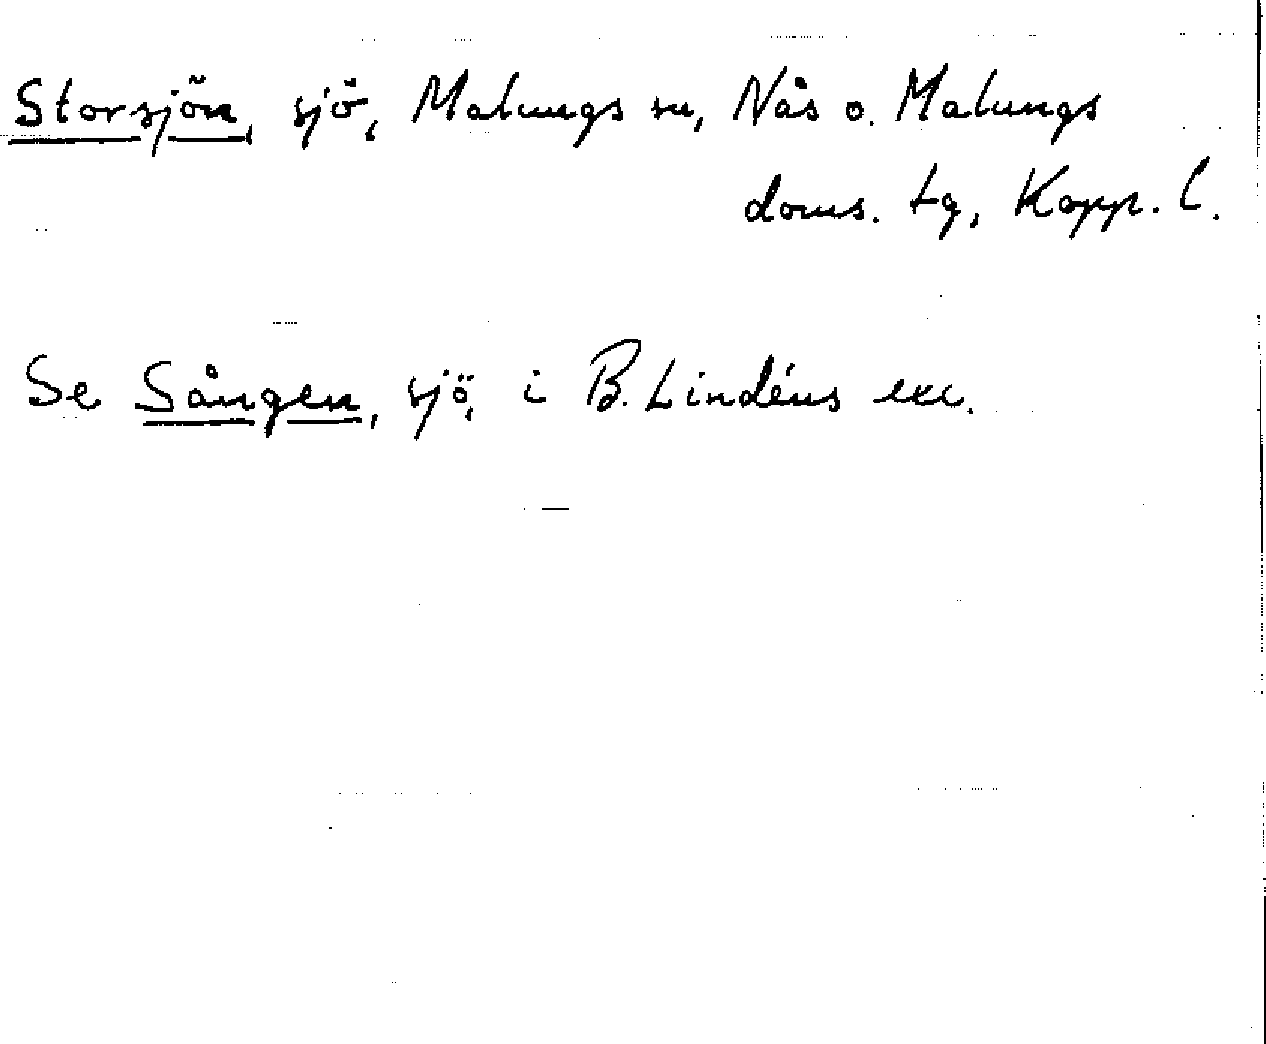 Storsjön, sjö, Malungs sn, Nås o. Malungs
doms. tg, Kopp. l.
Se Sången, sjö, i B. Lindéns exc.